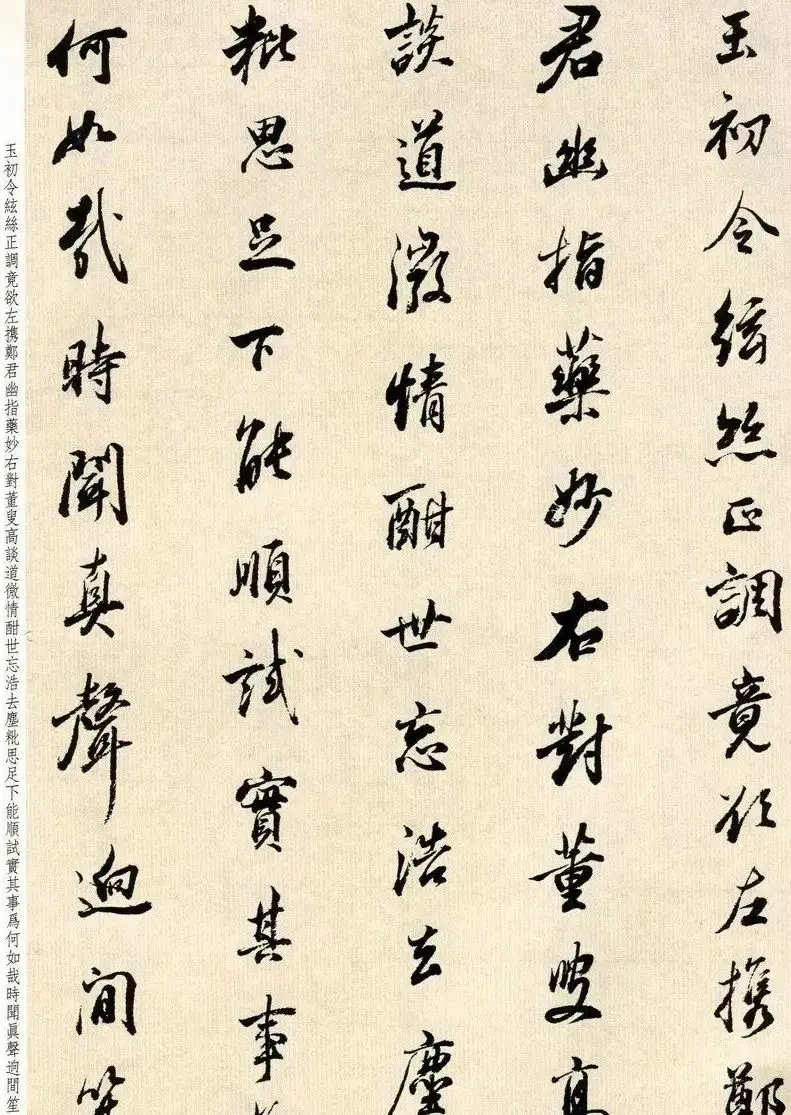 玉初令絃絲正調竟欲左携鄭
君幽指藥妙右對董叟高
談道微情酣世忘浩去塵
粃思足下能順試實其事爲
何如哉時聞真聲逈間笙
玉初令絃絲正調竟欲左携鄭君幽指藥妙右對董叟高談道微情酣世忘浩去塵粃思足下能順試實其事爲何如哉時聞眞聲逈間笙